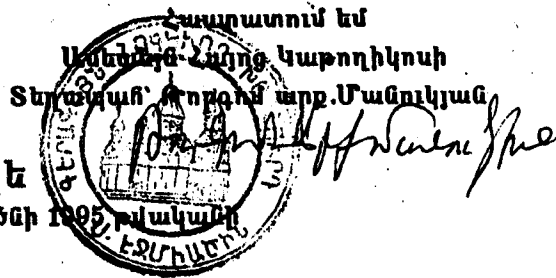 Հաստատում եմ
Ամենայն Հայոց Կաթողիկոսի
Տեղապահ՝ Թորգոմ արք.Մանուկյան
ե
նի 1995 թվականի
Ս. ԷՋՄԻԱԾԻՆ